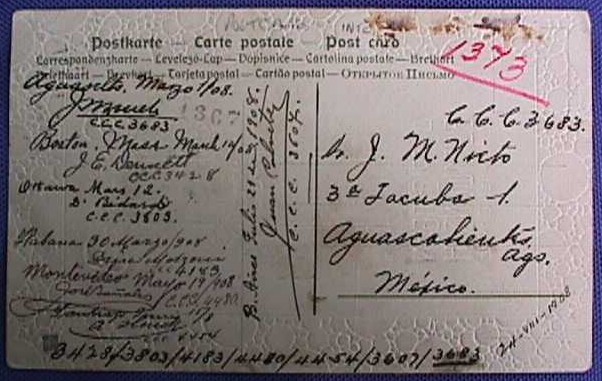 Postkarte — Carte postale — Post card
Correspondenzkarte — Levelezö-Lap — Dopisnice — Cartolina postale — Brefkort
Brevkort — Tarjeta postal — Cartão postal — Открытое Письмо
1373
Aguascts, Marzo 1/08.
CCC 3683
Boston, Mass March 12/08
J. E. Dennett
CCC 3428
Ottawa Mars 12.
C.C.C. 3803.
Habana 30 Marzo/908
4183
Montevideo Mayo 19/908
CCC/4480
4454
B. Aires Julio 21 de 1908.
C.C.C. 3607.
C. C. C. 3683.
Sr. J. M. Nieto
3ª Tacuba 1.
Aguascalientes,
Ags.
México.
3428/3803/4183/4480/4454/3607/3683
24-VIII-1908